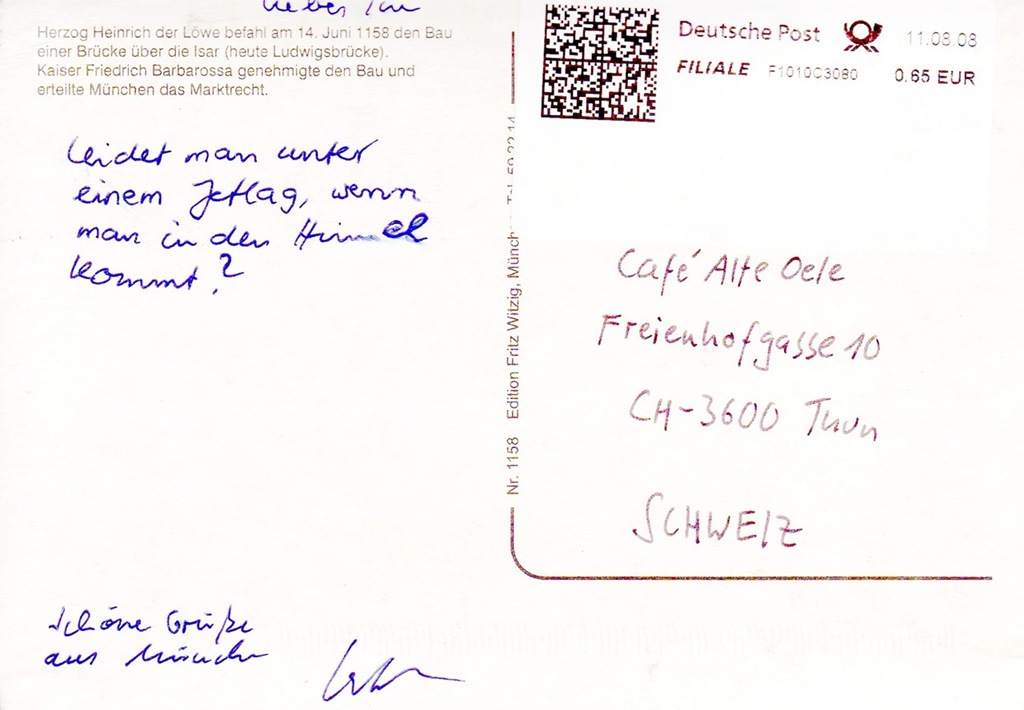 Herzog Heinrich der Löwe befahl am 14. Juni 1158 den Bau
einer Brücke über die Isar (heute Ludwigsbrücke).
Kaiser Friedrich Barbarossa genehmigte den Bau und
erteilte München das Marktrecht.
leidet man unter
einem Jetlag, wenn
man in den Himmel
kommt?
Schöne Grüße
aus München
Nr. 1158 Edition Fritz Witzig, Münch
Deutsche Post 11.08.08
FILIALE F1010C3080 0.65 EUR
Café Alte Oele
Freienhofgasse 10
CH-3600 Thun
SCHWEIZ